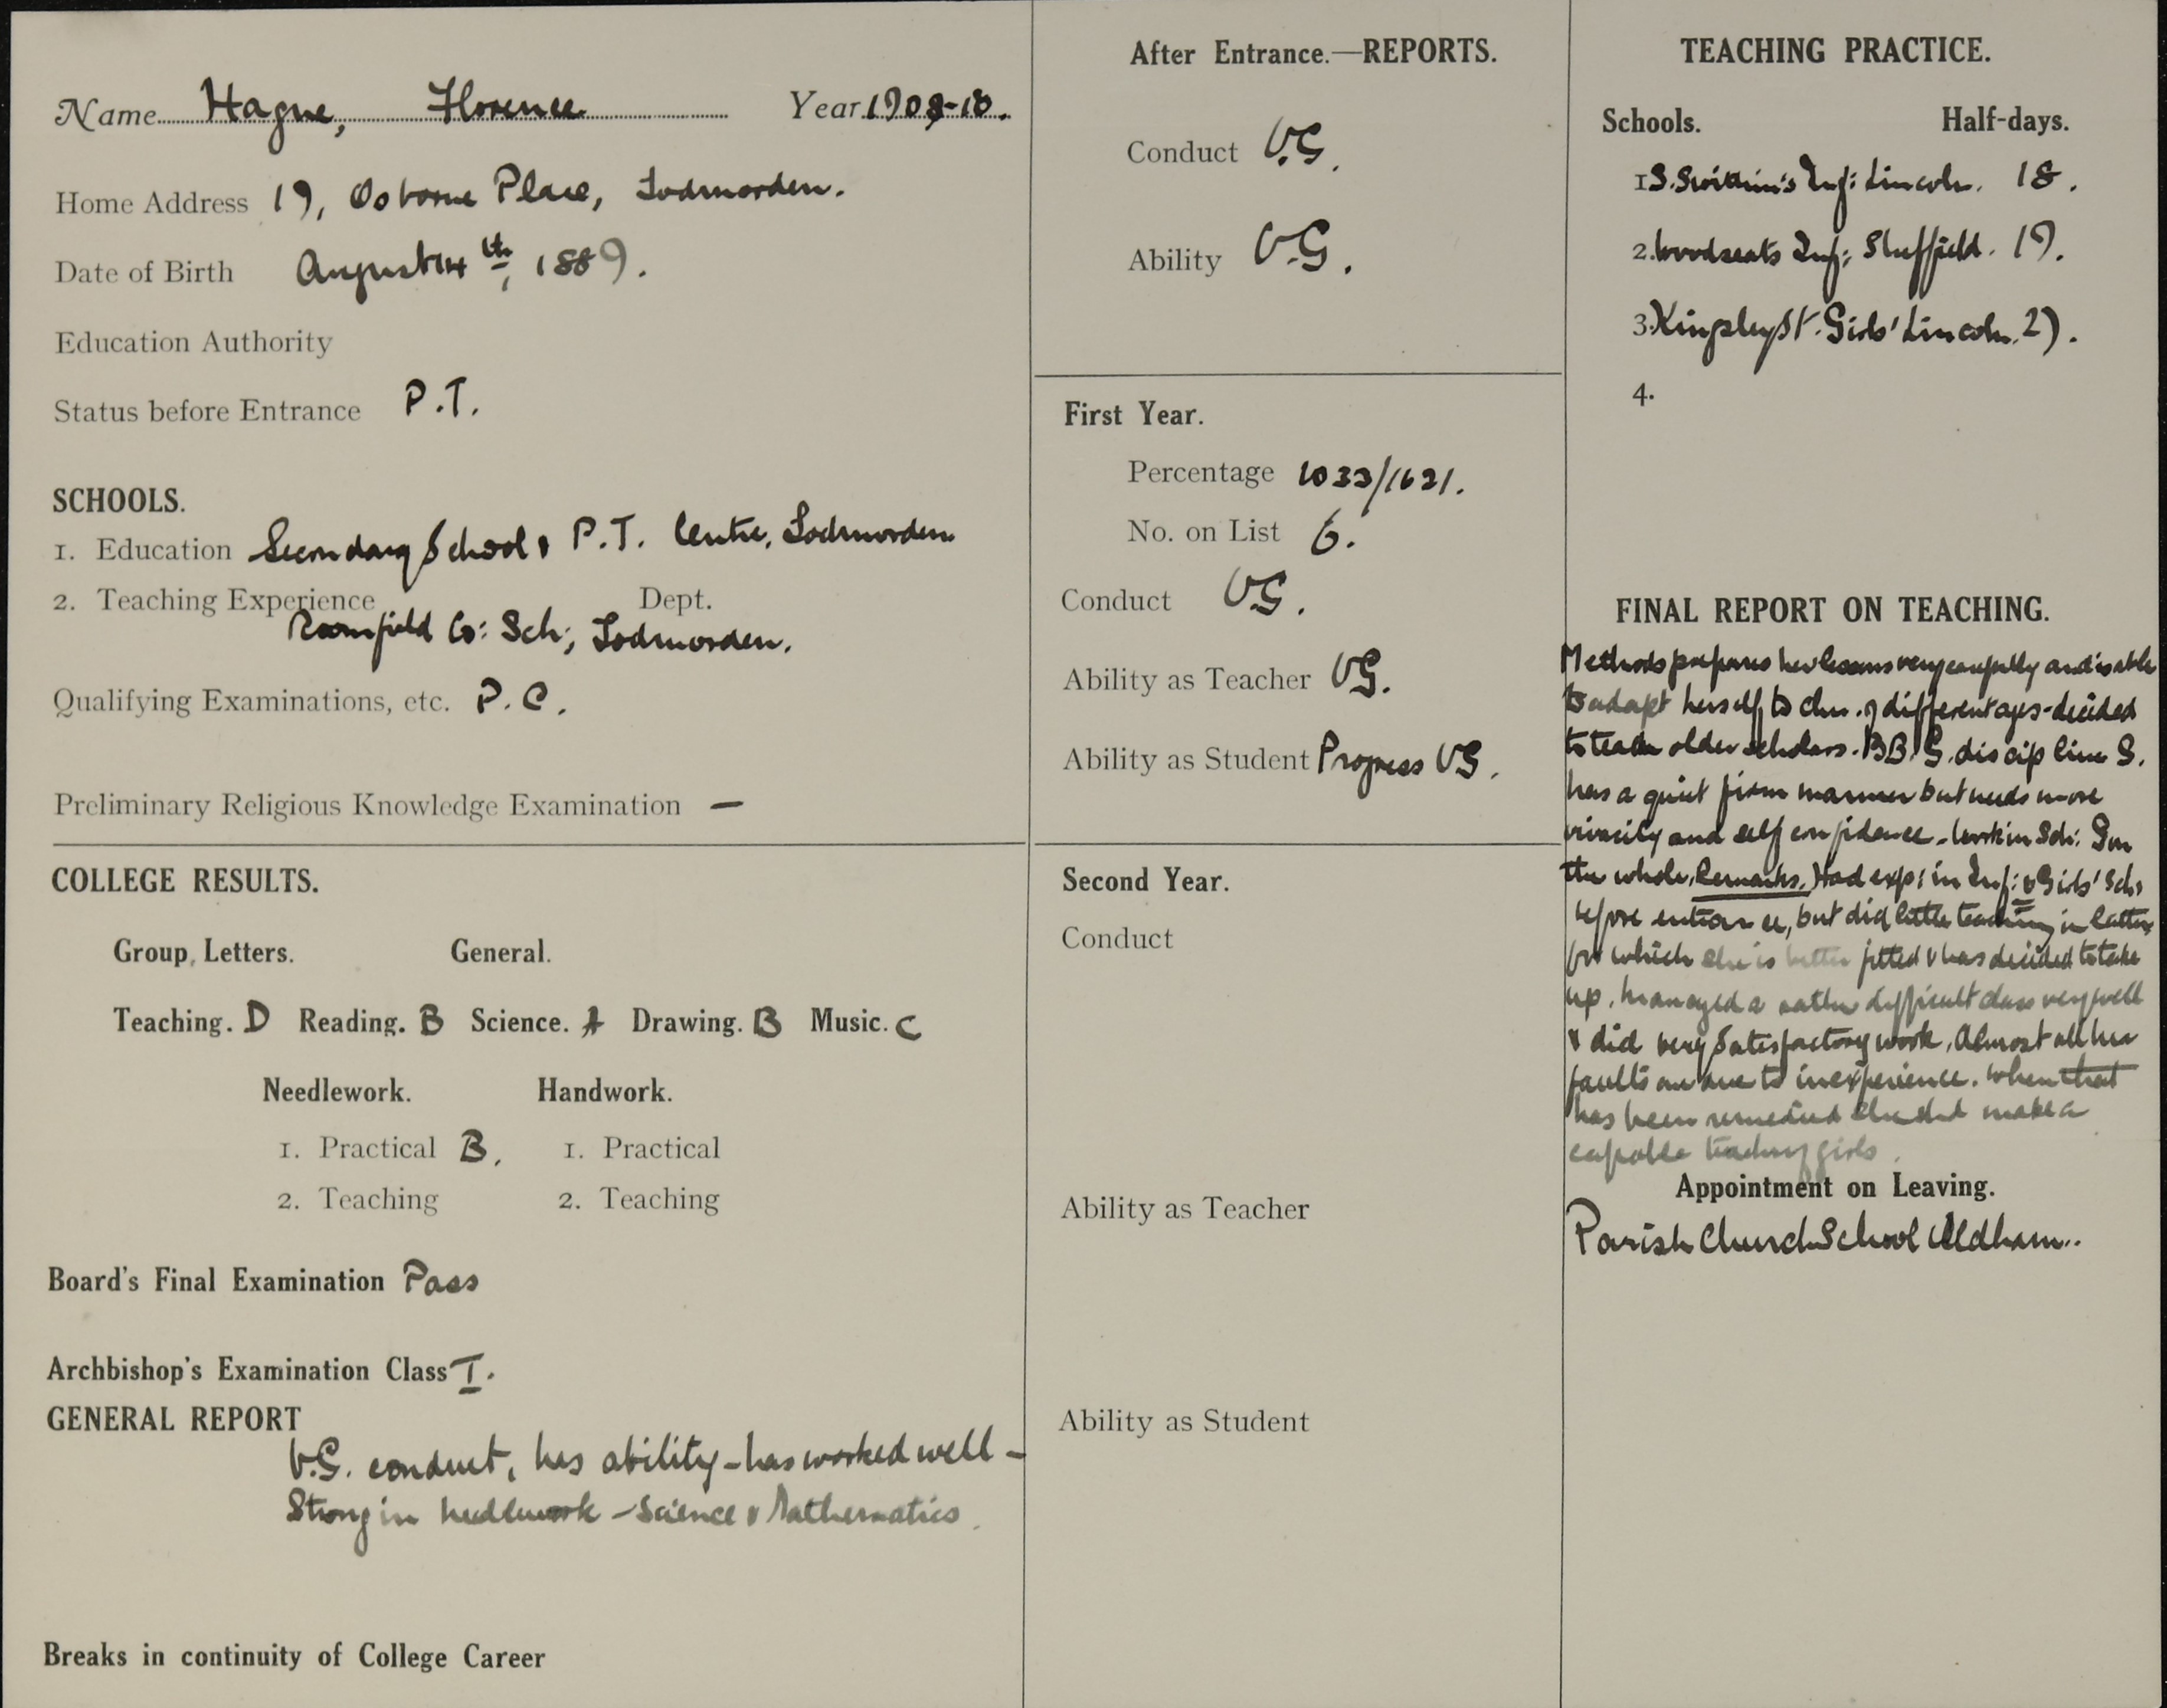 Name Hague, Florence Year 1908-10.
Home Address 19, Osborne Place, Todmorden.
Date of Birth August 14th, 1889.
Education Authority
Status before Entrance P.T.
SCHOOLS.
1. Education Secondary School & P.T. Centre, Todmorden
2. Teaching Experience Dept.
Roomfield Co: Sch:, Todmorden.
Qualifying Examinations, etc. P.C.
Preliminary Religious Knowledge Examination —
COLLEGE RESULTS.
Group Letters. General.
Teaching. D Reading. B Science. A Drawing. B Music. C
Needlework. Handwork.
1. Practical B. 1. Practical
2. Teaching 2. Teaching
Board's Final Examination Pass
Archbishop's Examination Class I.
GENERAL REPORT
V.G. conduct, has ability - has worked well -
Strong in needlework - Science & Mathematics.
Breaks in continuity of College Career
After Entrance.—REPORTS.
Conduct V.G.
Ability V.G.
First Year.
Percentage 1033/1621.
No. on List 6.
Conduct VG.
Ability as Teacher VG.
Ability as Student Progress VG.
Second Year.
Conduct
Ability as Teacher
Ability as Student
TEACHING PRACTICE.
Schools. Half-days.
1 S. Swithin's Inf: Lincoln. 18.
2. Woodseats Inf: Sheffield. 19.
3. Kingsley St. Girls' Lincoln. 27.
4.
FINAL REPORT ON TEACHING.
Methods prepares her lessons very carefully and is able
to adapt herself to chn. of different ages - decided
to teach older scholars. BB. G. discipline G.
has a quiet firm manner but needs more
vivacity and self confidence - Work in Sch: G on
the whole. Remarks. Had exp: in Inf: & Girls' Schs
before entrance, but did little teaching in latter,
for which she is better fitted & has decided to take
up. Managed a rather difficult class very well
& did very satisfactory work. Almost all her
faults are due to inexperience. When that
has been remedied she shd make a
capable teacher of girls.
Appointment on Leaving.
Parish Church School Oldham.